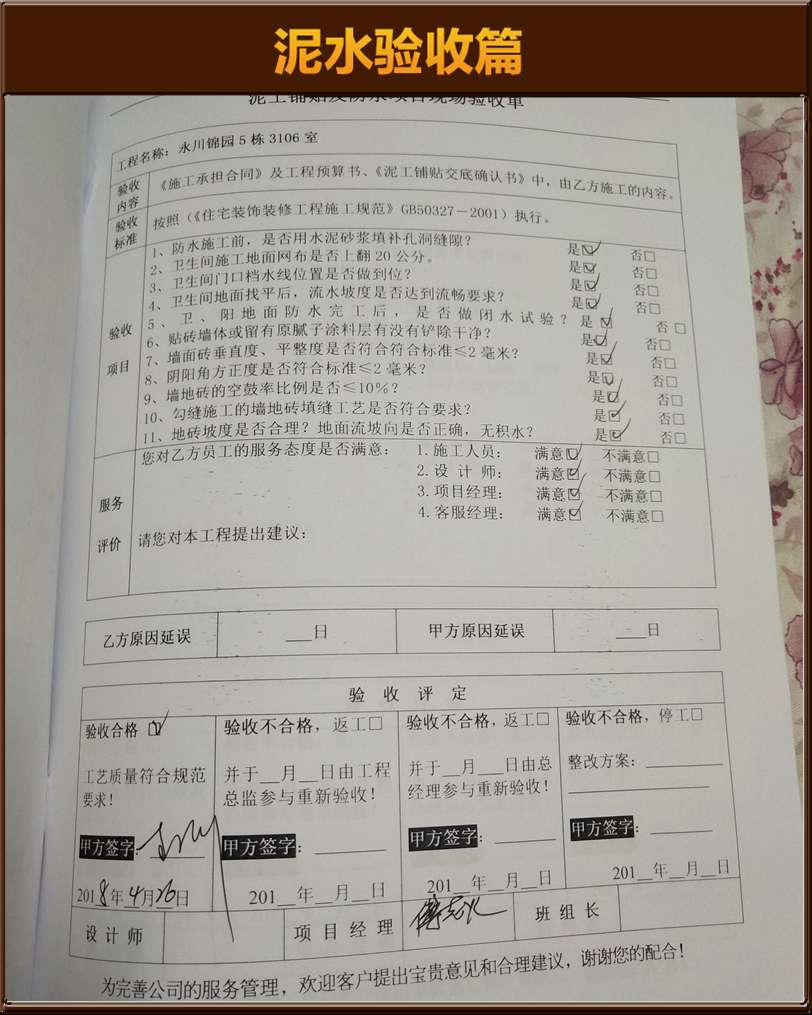 泥水验收篇
泥工铺贴及防水项目现场验收单
工程名称：永川锦园5栋3106室
验收内容 《施工承担合同》及工程预算书、《泥工铺贴交底确认书》中，由乙方施工的内容。
验收标准 按照（《住宅装饰装修工程施工规范》GB50327－2001）执行。
验收项目
1、防水施工前，是否用水泥砂浆填补孔洞缝隙？ 是☑ 否□
2、卫生间施工地面网布是否上翻20公分。 是☑ 否□
3、卫生间门口档水线位置是否做到位？ 是☑ 否□
4、卫生间地面找平后，流水坡度是否达到流畅要求？ 是☑ 否□
5、卫、阳地面防水完工后，是否做闭水试验？ 是☑ 否□
6、贴砖墙体或留有原腻子涂料层有没有铲除干净？ 是☑ 否□
7、墙面砖垂直度、平整度是否符合符合标准≤2毫米？ 是☑ 否□
8、阴阳角方正度是否符合标准≤2毫米？ 是☑ 否□
9、墙地砖的空鼓率比例是否≤10%？ 是☑ 否□
10、勾缝施工的墙地砖填缝工艺是否符合要求？ 是☑ 否□
11、地砖坡度是否合理？地面流坡向是否正确，无积水？ 是☑ 否□
服务评价
您对乙方员工的服务态度是否满意： 1.施工人员： 满意☑ 不满意□
2.设计师： 满意☑ 不满意□
3.项目经理： 满意☑ 不满意□
4.客服经理： 满意☑ 不满意□
请您对本工程提出建议：
乙方原因延误 ___日 甲方原因延误 ___日
验收评定
验收合格 ☑ 验收不合格，返工□ 验收不合格，返工□ 验收不合格，停工□
工艺质量符合规范 并于__月___日由工程 并于__月___日由总 整改方案：
要求！ 总监参与重新验收！ 经理参与重新验收！
甲方签字： 甲方签字： 甲方签字： 甲方签字：
2018年4月26日 201__年__月__日 201__年__月__日 201__年__月__日
设计师 项目经理 班组长
为完善公司的服务管理，欢迎客户提出宝贵意见和合理建议，谢谢您的配合！